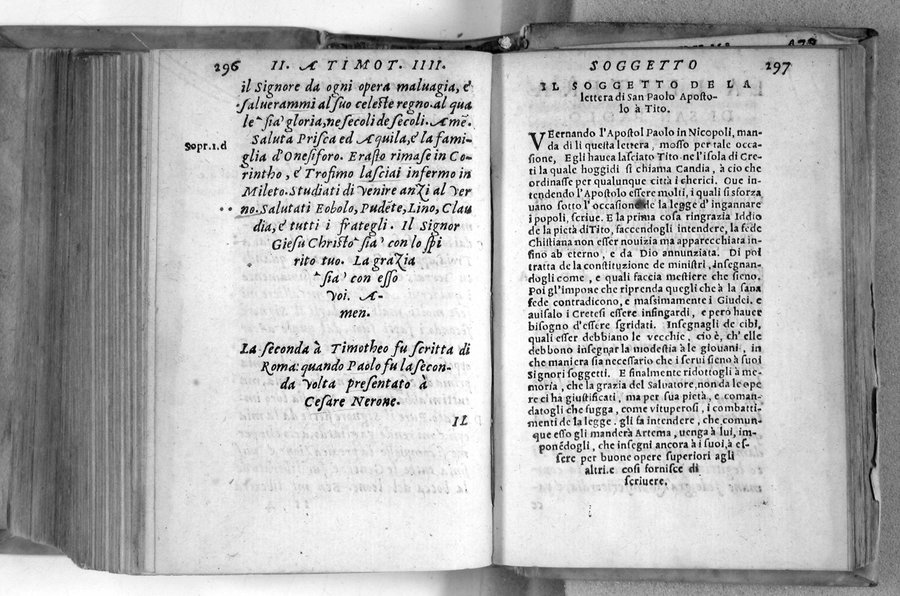 296 II. A TIMOT. IIII.
il Signore da ogni opera maluagia, è
saluerammi al suo celeste regno. al qua
le ˜sia' gloria, ne secoli de secoli. Amē.
Saluta Prisca ed Aquila, è la fami-
Sopr. 1. d
glia d'Onesiforo. Erasto rimase in Co-
rintho, è Trofimo lasciai infermo in
Mileto. Studiati di venire anzi al ver
no. Salutati Eobolo, Pudēte, Lino, Clau
dia, è tutti i frategli. Il Signor
Giesu Christo ˜sia' con lo spi
rito tuo. La grazia
˜sia' con esso
voi. A-
men.
La seconda à Timotheo fu scritta di
Roma: quando Paolo fu la secon-
da volta presentato à
Cesare Nerone.
IL
SOGGETTO 297
IL SOGGETTO DE LA
lettera di San Paolo Aposto-
lo à Tito.
VErnando l'Apostol Paolo in Nicopoli, man-
da di li questa lettera, mosso per tale occa-
sione, Egli hauea lasciato Tito ne l'isola di Cre-
ti la quale hoggidi si chiama Candia, à cio che
ordinasse per qualunque città i cherici. Oue in-
tendendo l'Apostolo essere molti, i quali si sforza
uano sotto l'occasione de la legge d'ingannare
i popoli, scriue. E la prima cosa ringrazia Iddio
de la pietà di Tito, faccendogli intendere, la fede
Chistiana non esser nouizia ma apparecchiata in-
sino ab eterno, e da Dio annunziata. Di poi
tratta de la constituzione de ministri, insegnan-
dogli come, e quali faccia mestiere che sieno.
Poi gl'impone che riprenda quegli che à la sana
fede contradicono, e massimamente i Giudei. e
auisalo i Cretesi essere infingardi, e però hauer
bisogno d'essere sgridati. Insegnagli de cibi,
quali esser debbiano le vecchie, cio è, ch' elle
debbono insegnar la modestia à le giouani, in
che maniera sia necessario che i serui sieno à suoi
Signori soggetti. E finalmente ridottogli à me-
moria, che la grazia del Saluatore, non da le ope
re ci ha giustificati, ma per sua pietà, e coman-
datogli che fugga, come vituperosi, i combatti-
menti de la legge. gli fa intendere, che comun-
que esso gli manderà Artema, uenga à lui, im-
ponēdogli, che insegni ancora à i suoi, à es-
sere per buone opere superiori agli
altri. e cosi fornisce di
scriuere.